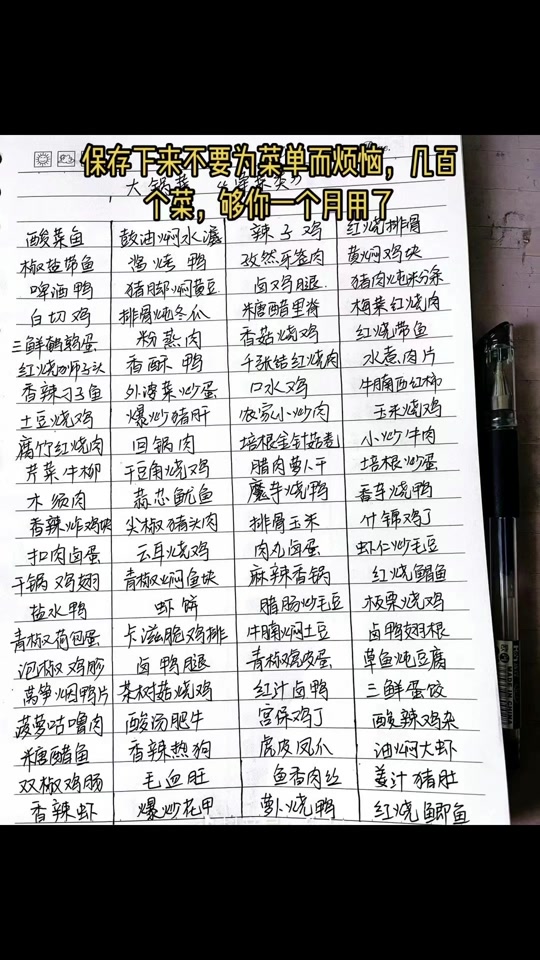 保存下来不要为菜单而烦恼，几百
个菜，够你一个月用了
大锅菜
酸菜鱼 鼓油焖水 辣子鸡 红烧排骨
椒盐带鱼 鸭 孜然牙签肉 黄焖鸡块
啤酒鸭 猪脚焖黄豆 卤鸡腿 猪肉炖粉条
白切鸡 排骨炖冬瓜 糖醋里脊 梅菜红烧肉
三鲜鹌鹑蛋 粉蒸肉 香菇烧鸡 红烧带鱼
红烧狮子头 香酥鸭 千张结红烧肉 水煮肉片
香辣刁子鱼 外婆菜炒蛋 口水鸡 牛腩西红柿
土豆烧鸡 爆炒猪肝 农家小炒肉 玉米烧鸡
腐竹红烧肉 回锅肉 培根金针菇卷 小炒牛肉
芹菜牛柳 干豆角烧鸡 腊肉萝卜干 培根炒蛋
木须肉 蒜芯鱿鱼 魔芋烧鸭 香芋烧鸭
香辣炸鸡块 尖椒猪头肉 排骨玉米 什锦鸡丁
扣肉卤蛋 云耳烧鸡 肉丸卤蛋 虾仁炒毛豆
干锅鸡翅 青椒焖鱼块 麻辣香锅 红烧鲳鱼
盐水鸭 虾饼 腊肠炒毛豆 板栗烧鸡
青椒荷包蛋 卡滋脆鸡排 牛腩焖土豆 卤鸭翅根
泡椒鸡胗 卤鸭腿 青椒窝皮蛋 草鱼炖豆腐
莴笋焖鸭片 茶树菇烧鸡 红汁卤鸭 三鲜蛋饺
菠萝咕噜肉 酸汤肥牛 宫保鸡丁 酸辣鸡杂
糖醋鱼 香辣热狗 虎皮凤爪 油焖大虾
双椒鸡肠 毛血旺 鱼香肉丝 姜汁猪肚
香辣虾 爆炒花甲 萝卜烧鸭 红烧鲫鱼